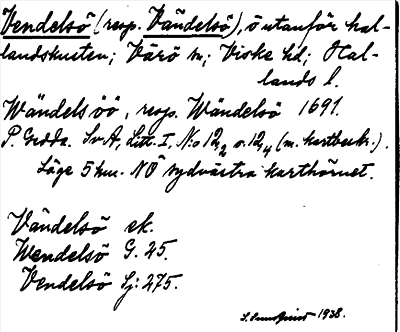 Vendelsö (resp. Vändelsö), ö utanför hal-
landskusten; Värö sn; Viske hd; Hal-
lands l.
Wändelsöö, resp. Wändelsö 1691.
P. Gedda. SvA, Litt. I, N:o 12,2 o. 12,4 (m. kartbeskr.).
Läge 5 km. NÖ sydvästra karthörnet.
Vändelsö ek.
Wendelsö G. 25.
Vendelsö Sj: 275.
1938.